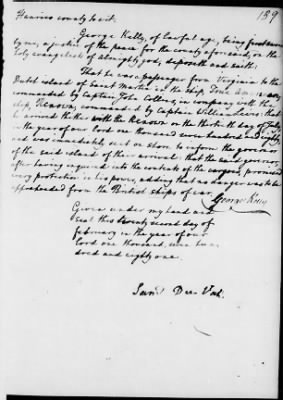 189
Henrico county to wit.
George Kelly, of lawful age, being first sworn
by me, a justice of the peace for the county aforesaid, on the
holy evangelists of almighty god, deposeth and saith:
That he was a passenger from Virginia to the
Dutch island of Saint Martin in the ship,
commanded by captain John Collins, in company with the
ship Renown, commanded by captain William Lewis: that
he arrived thither with the Renown on the thirtieth day of July
in the year of our lord one thousand seven hundred and eighty,
and was immediately sent on shore to inform the governor
of the said island of their arrival: that the said governor,
after having inquired into the contents of the cargoes promised
every protection in his power, adding that no danger was to be
apprehended from the British ships of war.
George Kelly
Given under my hand and
seal this twenty second day of
february in the year of our
lord one thousand, seven hun-
dred and eighty one.